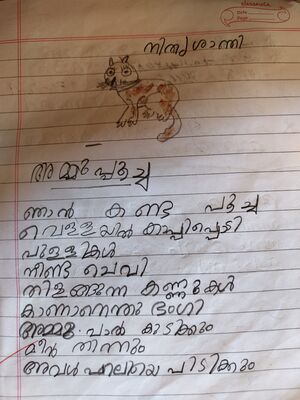 classmate
Date
Page
നിരുശാന്തി
അമ്മുപ്പൂച്ച
ഞാൻ കണ്ട പൂച്ച
വെള്ളയിൽ കാപ്പിപ്പൊടി
പുള്ളികൾ
നീണ്ട ചെവി
തിളങ്ങുന്ന കണ്ണുകൾ
കാണാനെന്തു ഭംഗി
അമ്മു പാൽ കുടിക്കും
മീൻ തിന്നും
അവൾ എലിയെ പിടിക്കും